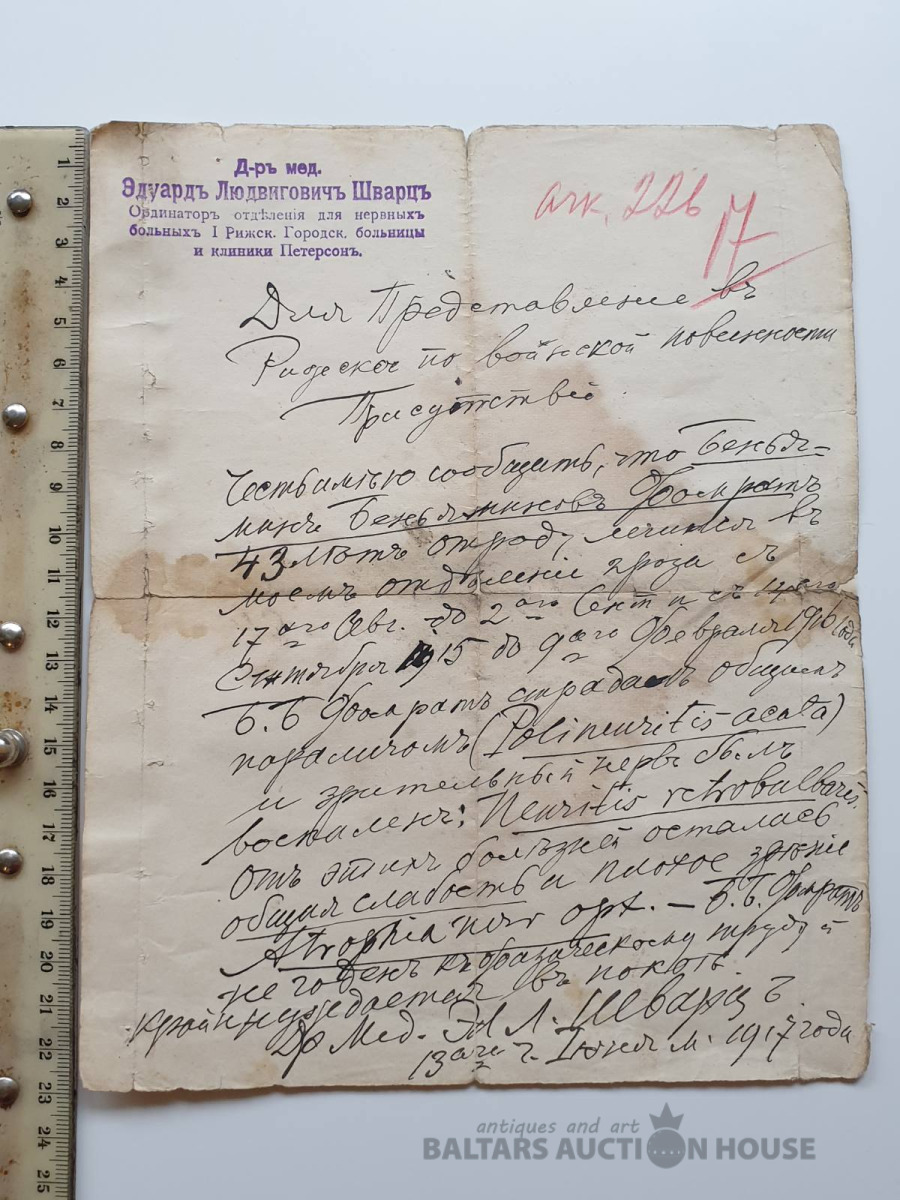 Д-ръ мед.
Эдуардъ Людвиговичъ Шварцъ
Ординаторъ отдѣленія для нервныхъ
больныхъ I Рижск. Городск. больницы
и клиники Петерсонъ.
226
17
Для Представленіе въ
по воинской повинности
Присутствіе
Честь имѣю сообщить, что Бенья-
минъ Беньяминовъ
43 лѣтъ отроду лечился въ
моемъ отдѣленіи съ
17 аго Авг. до 2 аго Сент и съ 14 аго
Сентября 1915 до 9 аго Февраля 1916 года
Б. Б. страдалъ общимъ
параличомъ (Polineuritis acuta)
и зрительный нервъ былъ
воспаленъ: Neuritis retrobulbaris.
отъ этихъ болѣзней осталась
общая слабость и плохое зрѣніе
Atrophia nerv opt. — Б. Б.
не годенъ къ физическому труду и
крайне нуждается въ покоѣ.
Др Мед. Э Л. Шварцъ.
13 аго ч. Іюня м. 1917 года
1
2
3
4
5
6
7
8
9
10
11
12
13
14
15
16
17
18
19
20
21
22
23
24
25
antiques and art
BALTARS AUCTION HOUSE